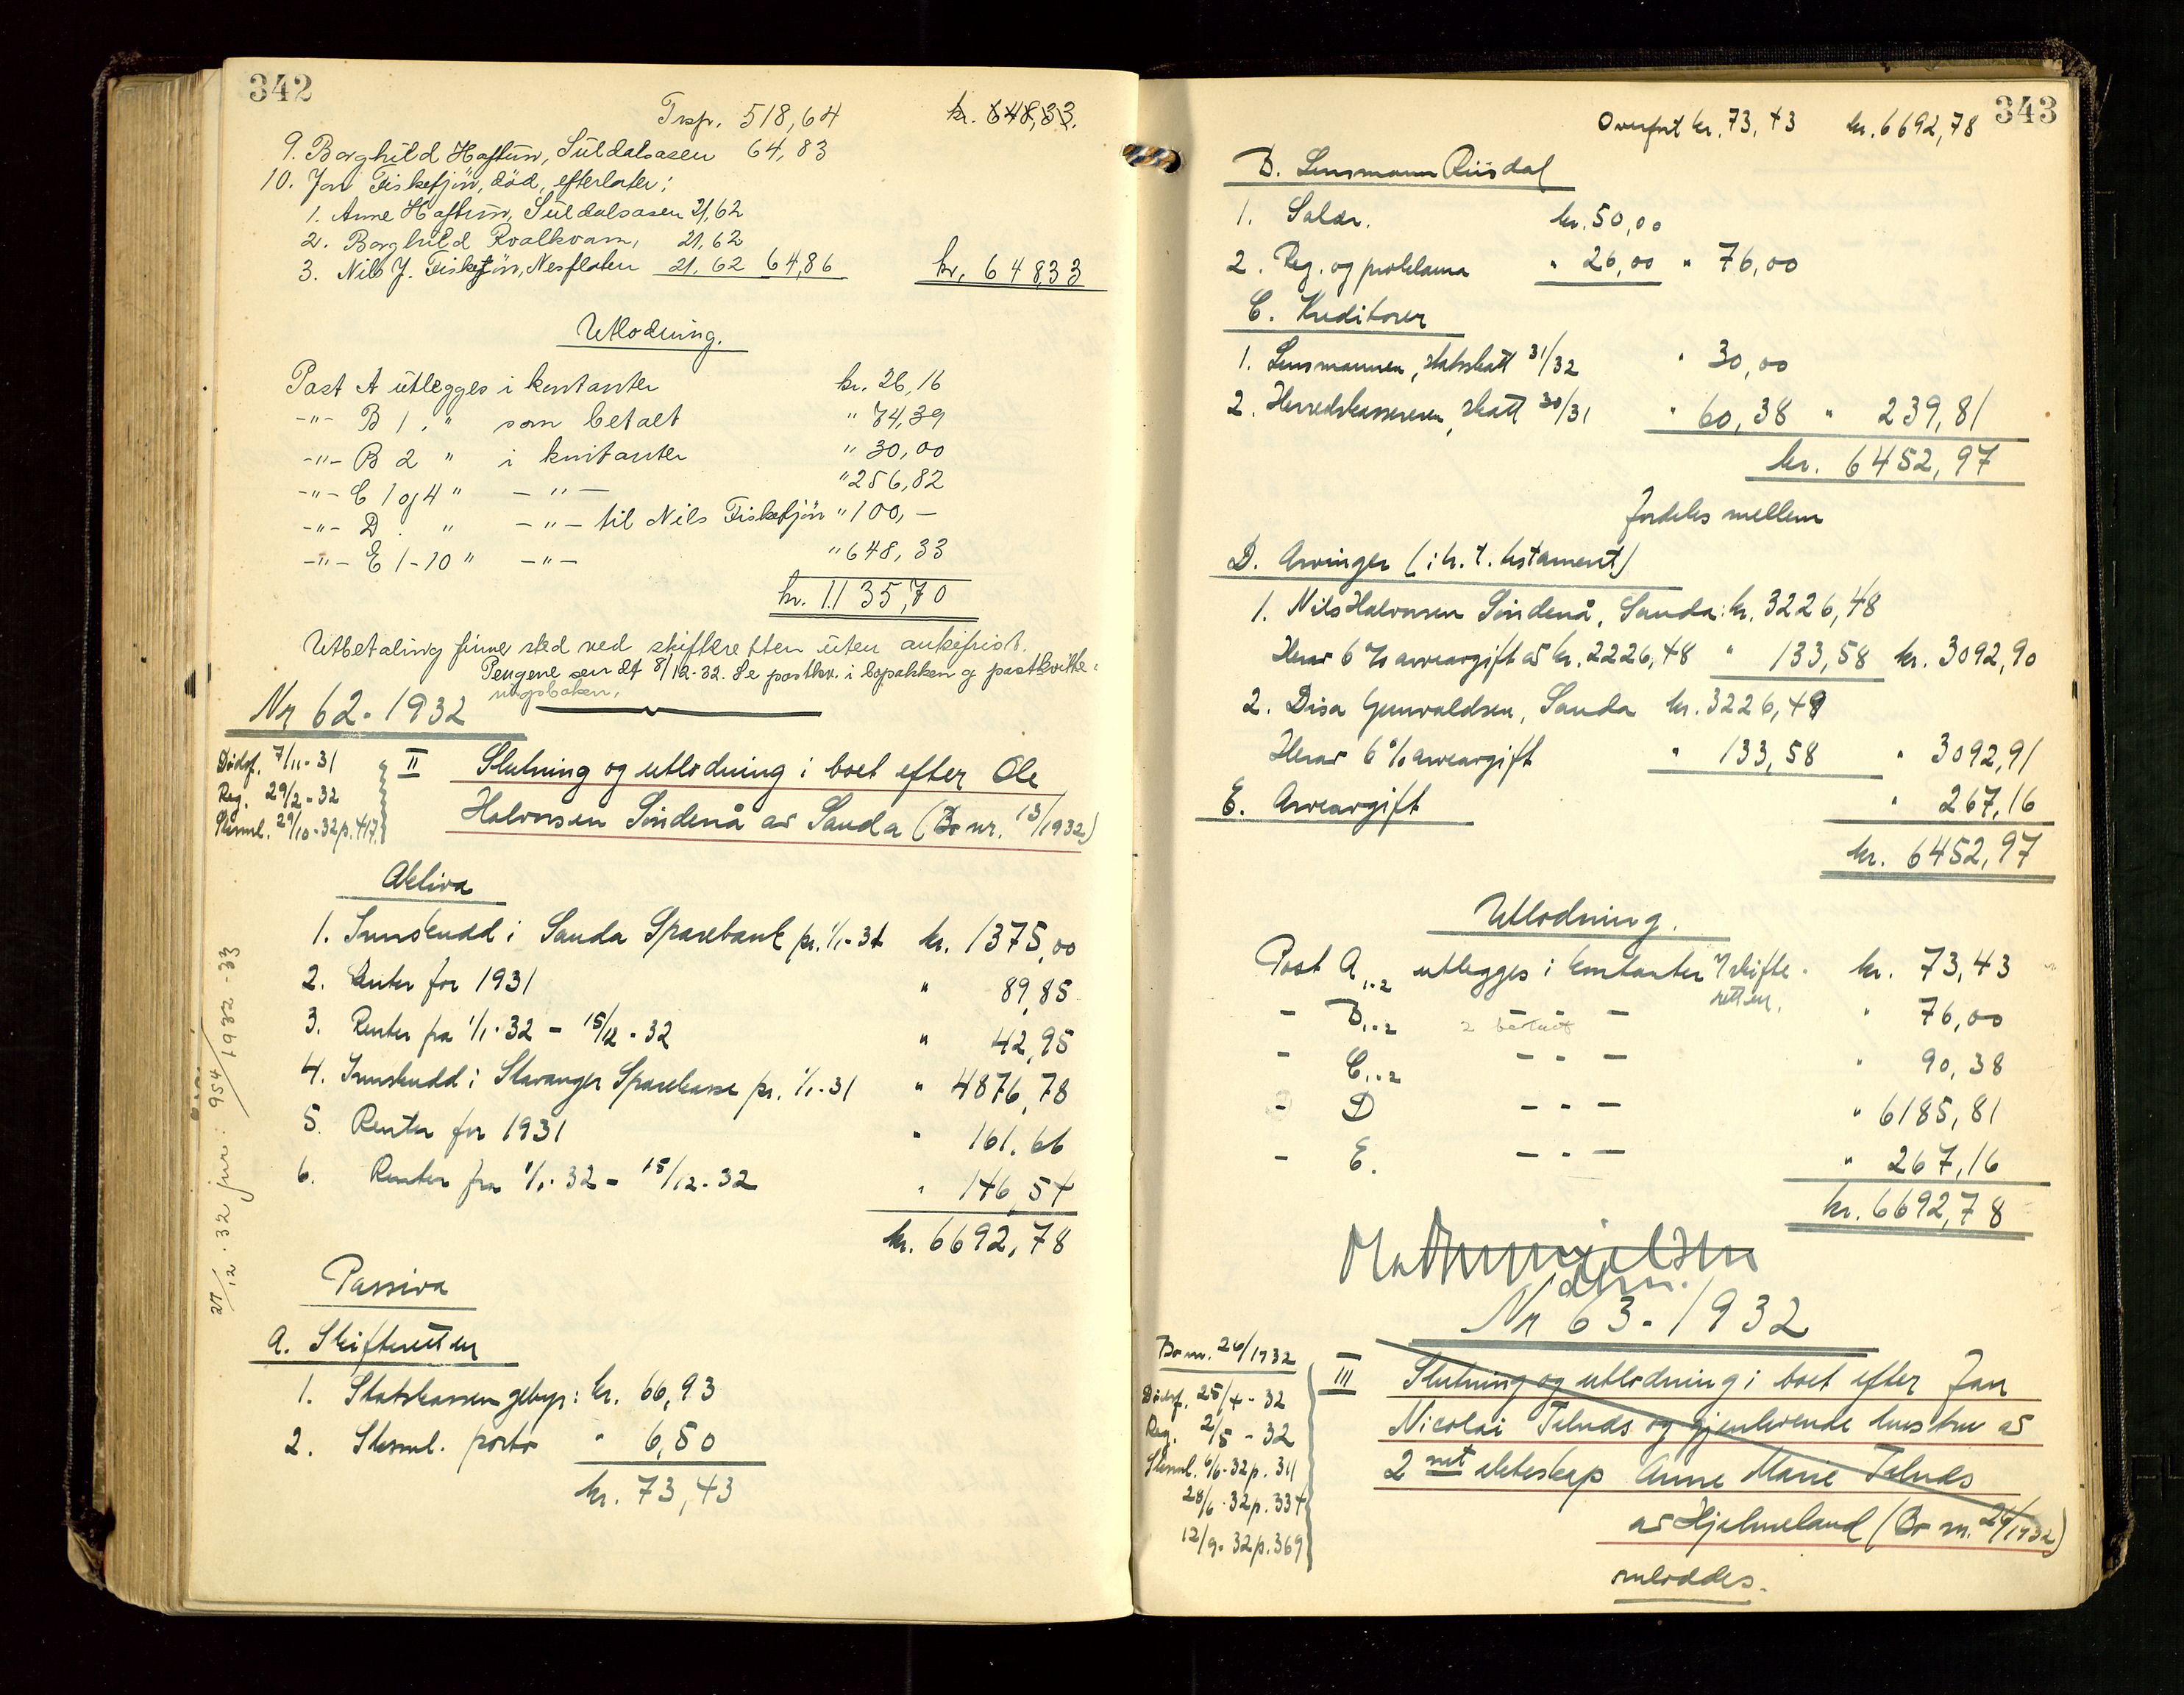 342
Trsp. 518,64 kr. 648,33.
9. Borghild Haftun, Suldalsosen 64,83
10. Jon Fiskefjön, död, efterlater:
1. Anne Haftun, Suldalsosen 21,62
2. Borghild Kvalkvam, 21,62
3. Nils J. Fiskefjön, Nesflaten 21,62 64,86 kr. 648,33
Utlodning.
Post A utlegges i kontanter kr. 26,16
-"- B 1. " som betalt " 74,39
-"- B 2 " i kontanter " 30,00
-"- C 1 og 4 " -"- " 256,82
-"- D. " -"- til Nils Fiskefjön " 100,-
-"- E 1-10 " -"- " 648,33
kr. 1135,70
Utbetaling finner sted ved skifteretten uten ankefrist.
Pengene sendt 8/12-32. Se postkv. i bopakken og postkvitte-
ringsboken.
Nr 62-1932
Dödsf. 7/11-31
Reg. 29/2-32
Sksml. 29/10-32 p. 417.
II Slutning og utlodning i boet efter Ole
Halvorsen Söndenå av Sauda (Bo nr. 13/1932)
Aktiva
1. Innskudd i Sauda Sparebank pr. 1/1-31 kr. 1375,00
2. Renter for 1931 " 89,85
3. Renter fra 1/1-32 - 15/12-32 " 42,95
4. Innskudd i Stavanger Sparekasse pr. 1/1-31 " 4876,78
5. Renter for 1931 " 161,66
6. Renter fra 1/1-32 - 15/12-32 " 146,54
kr. 6692,78
27/12-32 jnr: 954/1932-33
Passiva
A. Skifteretten
1. Statskassen gebyr: kr. 66,93
2. Sksml. porto " 6,50
kr. 73,43
343
Overfört kr. 73,43 kr. 6692,78
B. Lensmann Riisdal
1. Salær. kr. 50,00
2. Reg. og proklama " 26,00 " 76,00
C. Kreditorer
1. Lensmannen, statsskatt 31/32 " 30,00
2. Herredskassereren, skatt 30/31 " 60,38 " 239,81
kr. 6452,97
fordeles mellem
D. Arvinger (i h. t. testament)
1. Nils Halvorsen Söndenå, Sauda: kr. 3226,48
Herav 6% arveavgift av kr. 2226,48 " 133,58 kr. 3092,90
2. Disa Gunvaldsen, Sauda kr. 3226,49
Herav 6% arveavgift " 133,58 " 3092,91
E. Arveavgift " 267,16
kr. 6452,97
Utlodning.
Post A 1-2 utlegges i kontanter t/ skifte-
retten. kr. 73,43
- B 1-2 2 betalt - - - " 76,00
- C 1-2 - - - " 90,38
- D - - - " 6185,81
- E. - - - " 267,16
kr. 6692,78
Nr 63-1932
Bo nr. 26/1932
Dödsf. 25/4-32
Reg. 2/5-32
Sksml. 6/6-32 p. 311
28/6-32 p. 334
12/9-32 p. 369
III Slutning og utlodning i boet efter Jan
Nicolai Telnds og gjenlevende hustru av
2 net ekteskap Anne Marie Telnds
av Hjelmeland (Bo nr. 26/1932)
omloddes.